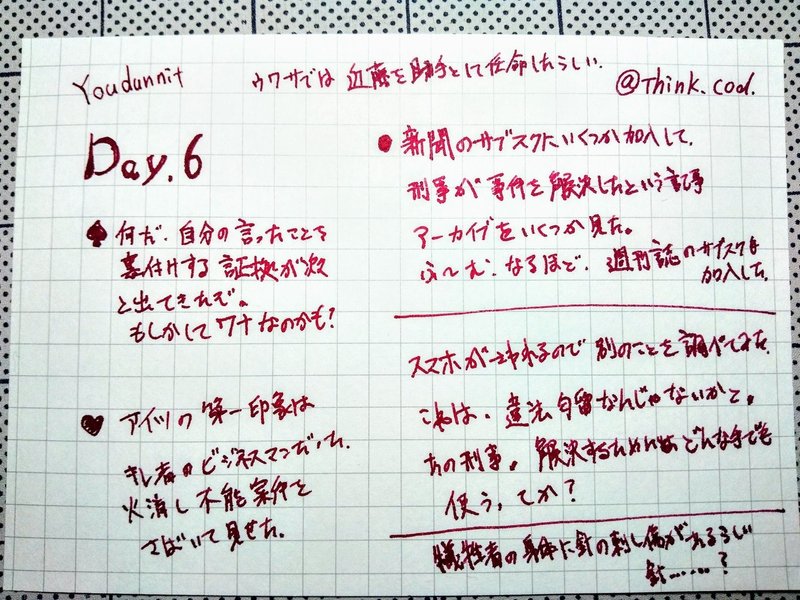 Youdunnit
ウワサでは 近藤を助手として任命したらしい.
@Think.cod.
Day.6
♠ 何だ. 自分の言ったことを
裏付けする証拠が次
と出てきたぞ。
もしかして ワナなのかも!
♥ アイツの第一印象は
キレ者のビジネスマンだった.
火消し不能案件を
さばいて見せた.
● 新聞のサブスクにいくつか加入して.
刑事が事件を解決したという記事
アーカイブをいくつか見た。
ふ〜む. なるほど. 週刊誌のサブスクも
加入した.
スマホが使われるので 別のことを調べてみた.
これは、違法勾留なんじゃないかと。
あの刑事。解決するためにはどんな手でも
使う, てか?
犠牲者の身体に針の刺し傷があるらしい
針……?